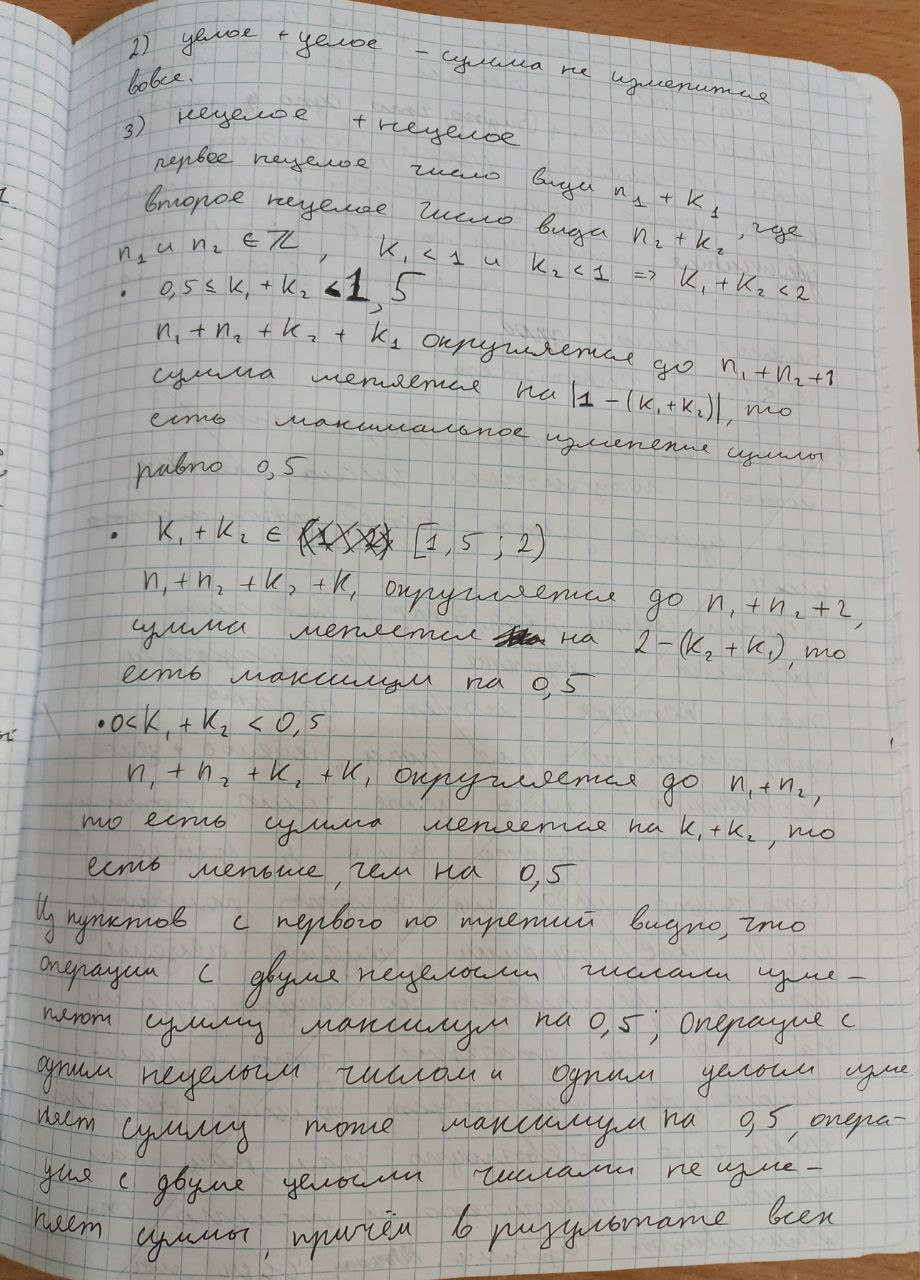 2) целое + целое – сумма не изменится
вовсе.
3) нецелое + нецелое
первое нецелое число вида n₁ + k₁
второе нецелое число вида n₂ + k₂, где
n₁ и n₂ ∈ ℤ, k₁ < 1 и k₂ < 1 => k₁ + k₂ < 2
• 0,5 ≤ k₁ + k₂ < 1,5
n₁ + n₂ + k₂ + k₁ округляется до n₁ + n₂ + 1
сумма меняется на |1 – (k₁ + k₂)|, то
есть максимальное изменение суммы
равно 0,5
• k₁ + k₂ ∈ [1,5 ; 2)
n₁ + n₂ + k₂ + k₁ округляется до n₁ + n₂ + 2,
сумма меняется на 2 – (k₂ + k₁), то
есть максимум на 0,5
• 0 < k₁ + k₂ < 0,5
n₁ + n₂ + k₂ + k₁ округляется до n₁ + n₂,
то есть сумма меняется на k₁ + k₂, то
есть меньше, чем на 0,5
Из пунктов с первого по третий видно, что
операции с двумя нецелыми числами изме–
няют сумму максимум на 0,5; операция с
одним нецелым числом и одним целым изме
няет сумму тоже максимум на 0,5, опера–
ция с двумя целыми числами не изме–
няет суммы, причём в ризультате всех